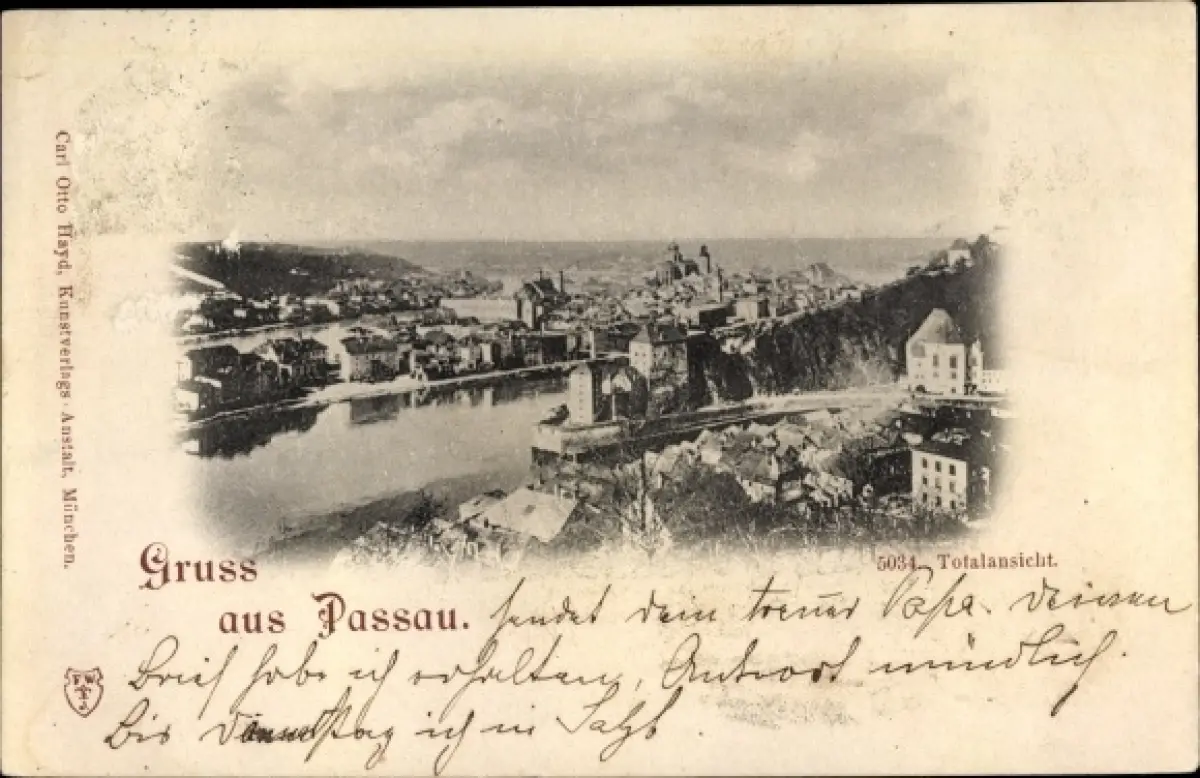 Carl Otto Hayd, Kunstverlags-Anstalt, München.
5034. Totalansicht.
Gruss
aus Passau.
sendet dein treuer Papa. Deinen
Brief habe ich erhalten, Antwort mündlich.
Bis ich in Salzb